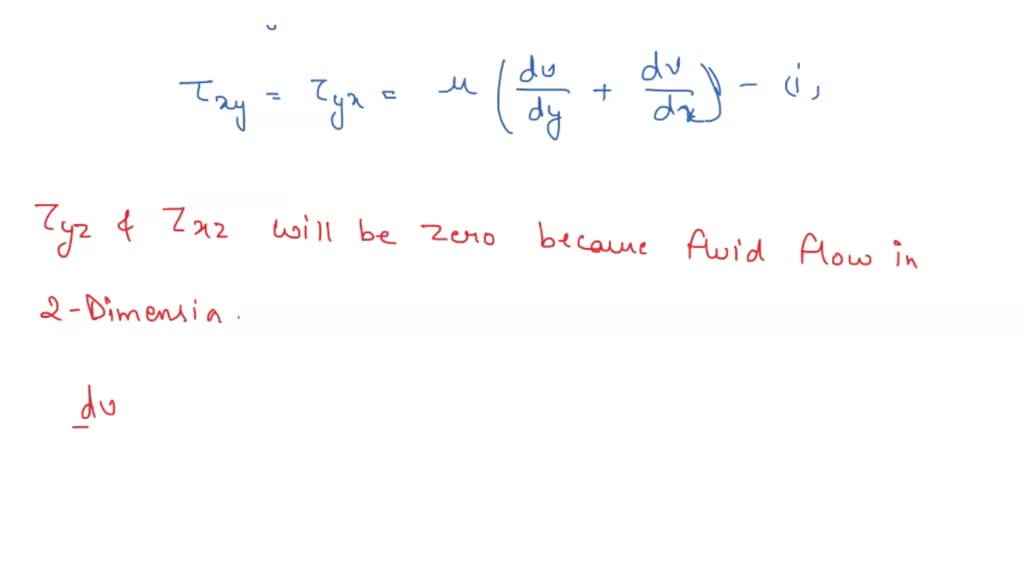 τxy = τyx = μ (du/dy + dv/dx) - (i)
τyz & τxz will be zero because fluid flow in
2-Dimensia.
du